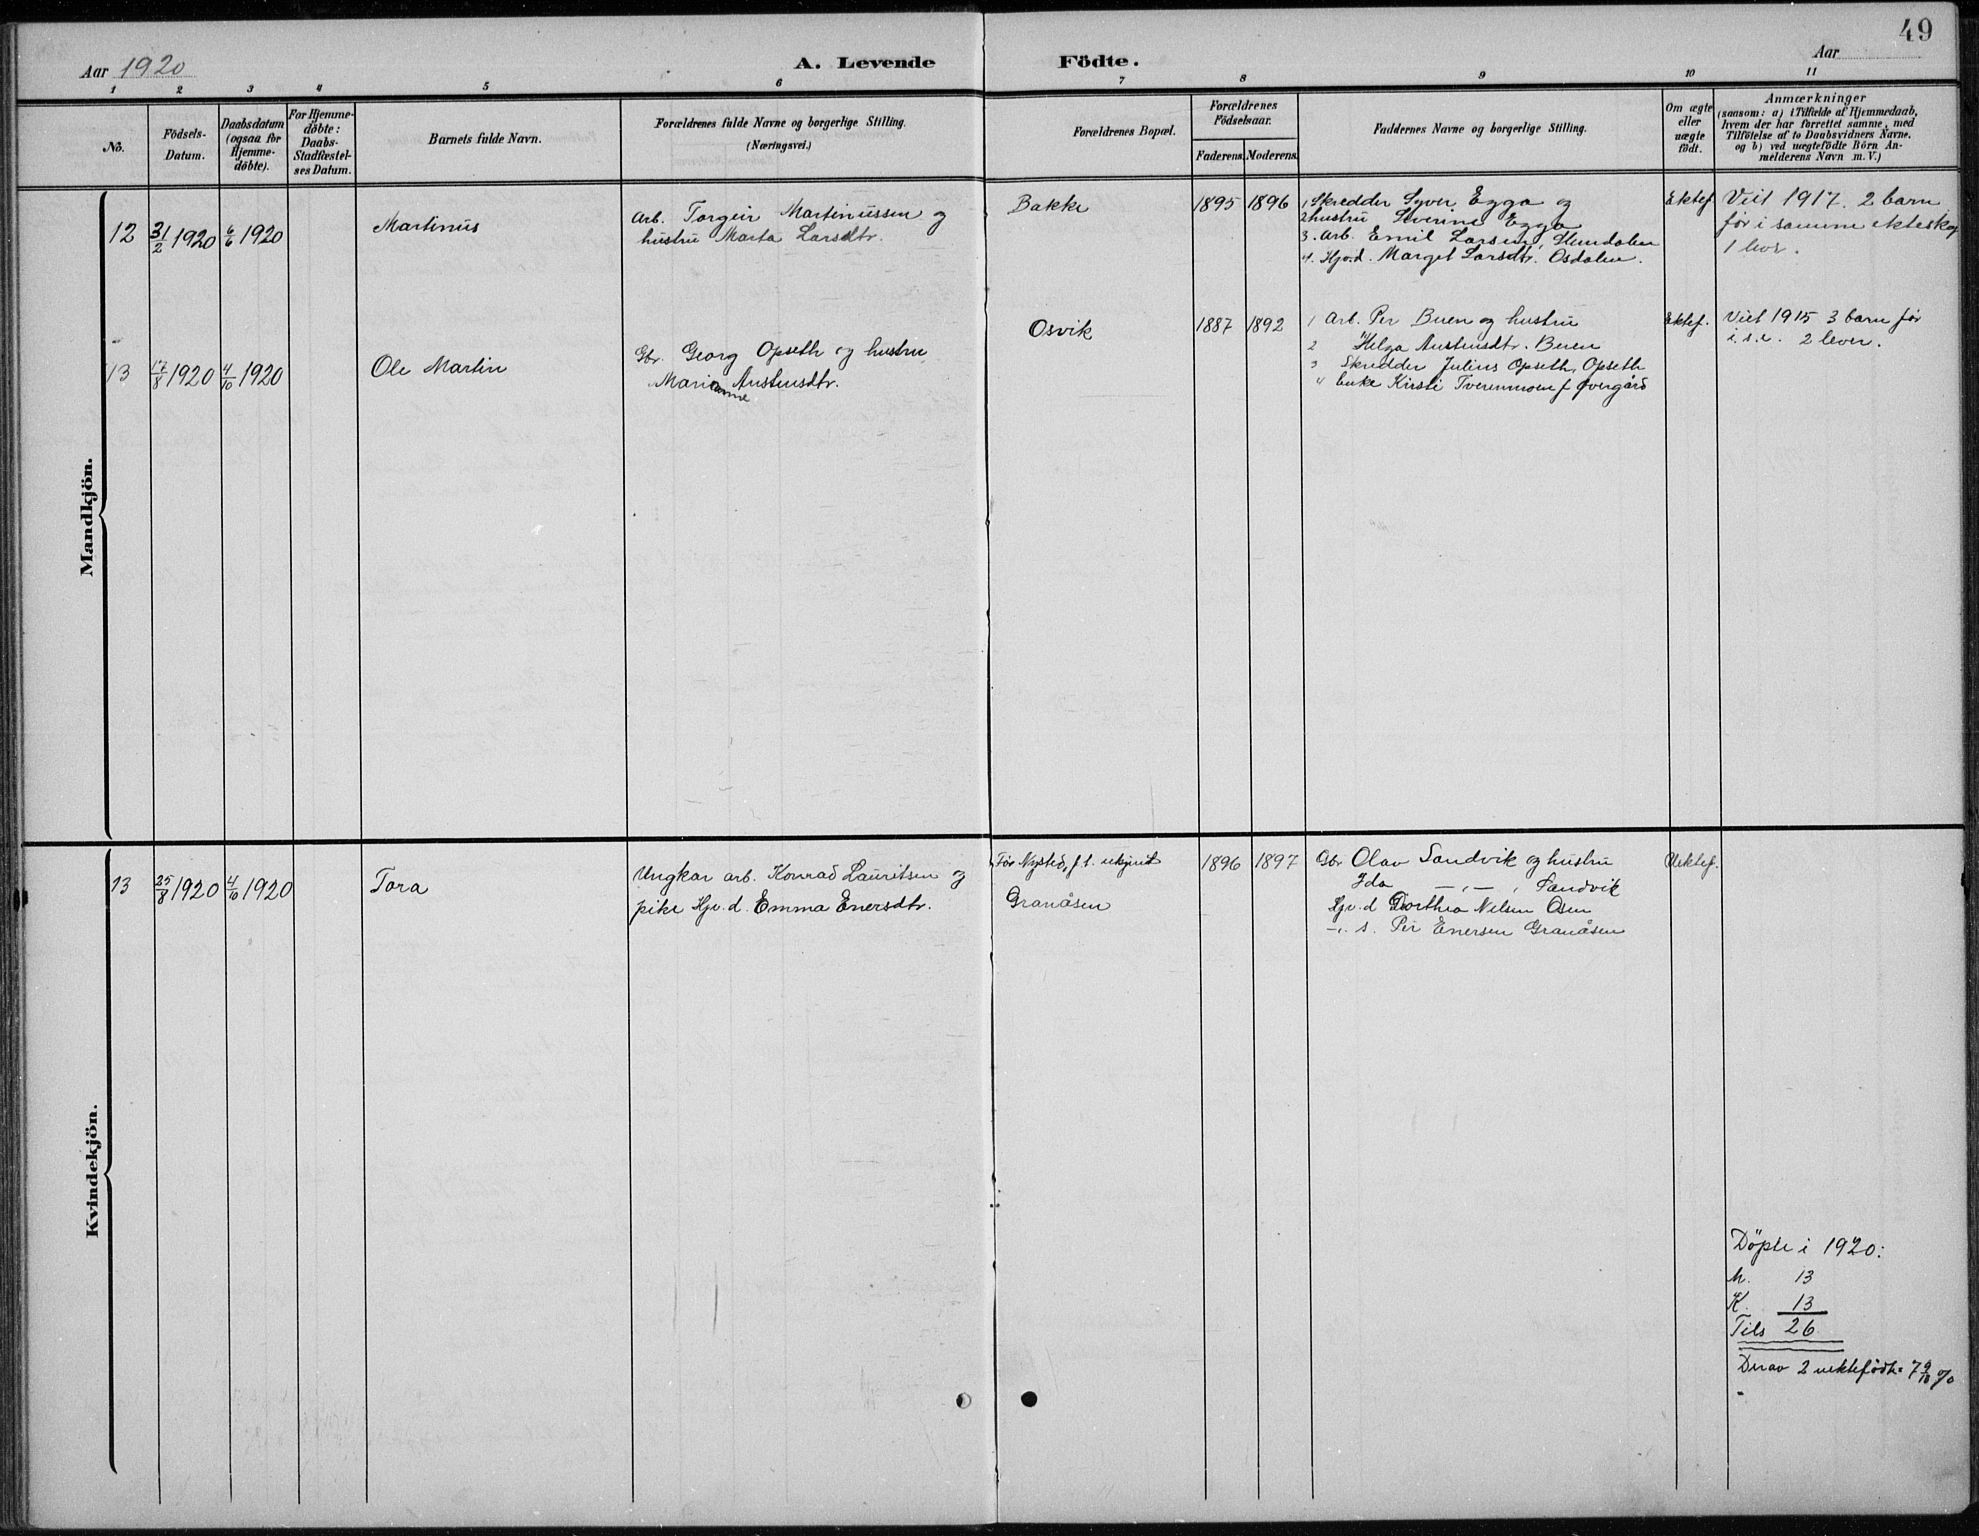 49
Aar 1920
A. Levende Födte.
Aar
1 2 3 4 5 6 7 8 9 10 11
No.
Födsels-
Datum.
Daabsdatum
(ogsaa for
Hjemme-
döbte).
For Hjemme-
döbte:
Daabs-
Stadfæstel-
ses Datum.
Barnets fulde Navn.
Forældrenes fulde Navne og borgerlige Stilling.
(Næringsvei.)
Forældrenes Bopæl.
Forældrenes
Födselsaar.
Faderens. Moderens.
Faddernes Navne og borgerlige Stilling.
Om ægte
eller
uægte
födt.
Anmærkninger
(saasom: a) i Tilfælde af Hjemmedaab,
hvem der har forrettet samme, med
Tilföielse af to Daabsvidners Navne.
og b) ved uægtefödte Börn An-
melderens Navn m. V.)
Mandkjön.
12 31/2 1920 6/6 1920
Martinus
Arb. Torgeir Martinussen og
hustru Marta Larsdtr.
Bakke
1895 1896
1 Skredder Syver Egga og
2 hustru Severine Egga
3. Arb. Emil Larsen,
4. Hjv.d. Marget Larsdtr. Osdalen.
Ektef
Viet 1917. 2 barn
før i samme ekteskap
1 lever.
13 17/8 1920 4/10 1920
Ole Martin
Gbr. Georg Opseth og hustru
Marianne Austensdtr.
Osvik
1887 1892
1 Arb. Per Buen og hustru
2 Helga Austensdtr. Buen
3 Skredder Julius Opseth, Opseth
4 Enke Kirsti Tverenmoen f Øvergård
Ektef.
Viet 1915 3 barn før
i. s. e. 2 lever.
Kvindekjön.
13 25/8 1920 4/10 1920
Tora
Ungkar arb. Konrad Lauritsen og
pike Hjv. d. Emma Enersdtr.
Før Nysted, f. t. ukjent
Granåsen
1896 1897
Gbr Olav Sandvik og hustru
Ida —„— , Sandvik
Hjv. d Dorthea Nilsen Osen
—„ s. Per Enersen Granåsen
Uektef.
Döpte i 1920:
M. 13
K. 13
Tils 26
Derav 2 uektefødte = 7 9/10 %